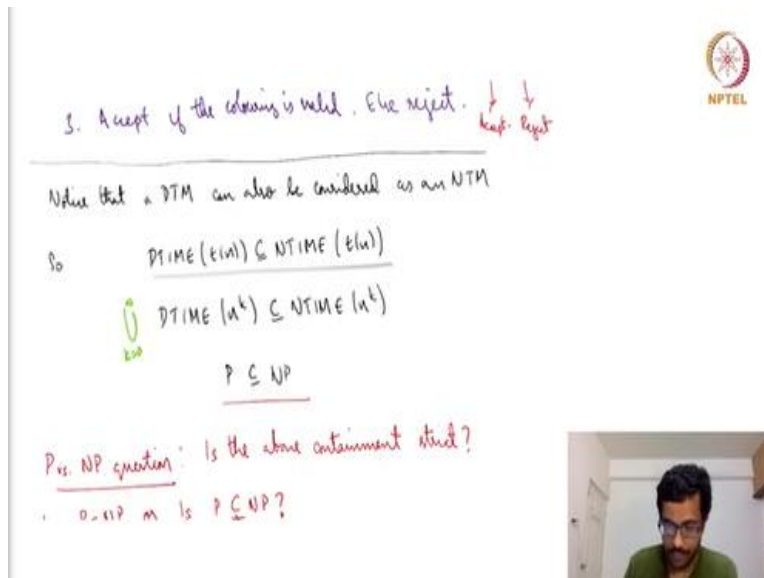 3. Accept if the colouring is valid. Else reject.
Accept. Reject
NPTEL
Notice that a DTM can also be considered as an NTM
So DTIME (t(n)) ⊆ NTIME (t(n))
∞
∪ DTIME (n^k) ⊆ NTIME (n^k)
k=0
P ⊆ NP
P vs. NP question: Is the above containment strict?
Is P ⊊ NP?